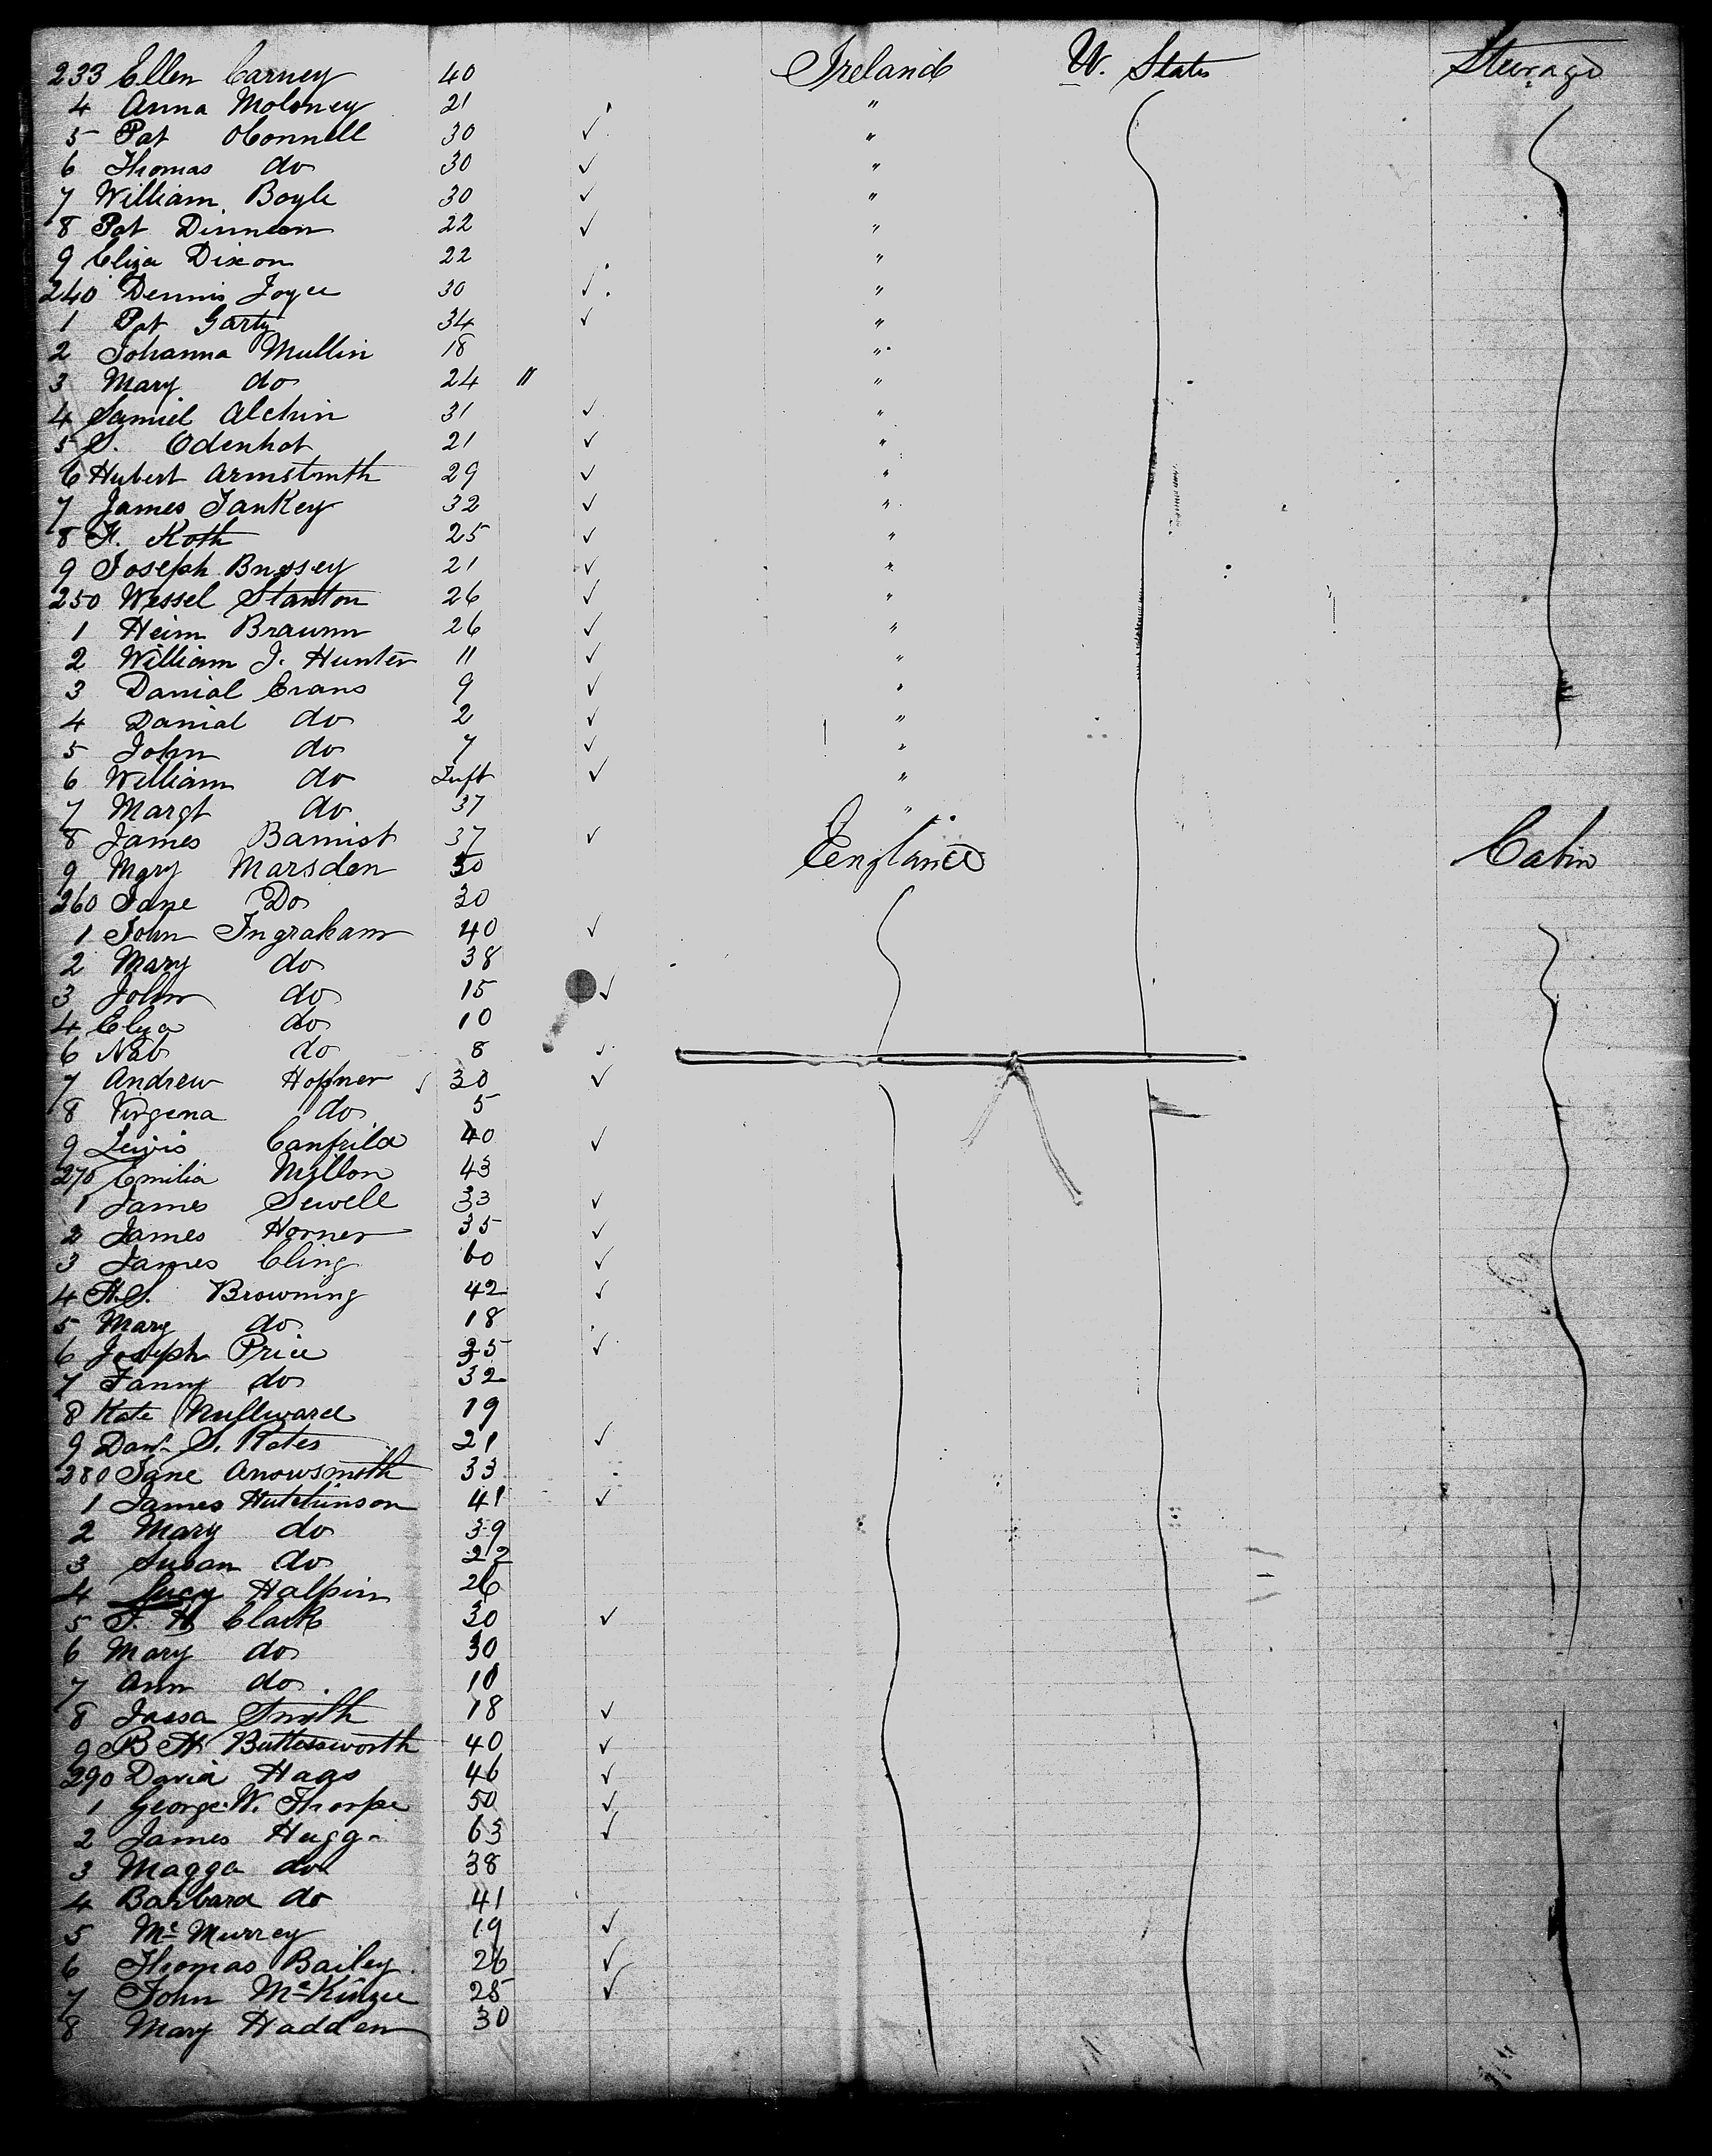 233 Ellen Carney 40 Ireland U. States Steerage
4 Anna Moloney 21 "
5 Pat OConnell 30 ✓ "
6 Thomas do 30 ✓ "
7 William Boyle 30 ✓ "
8 Pat Dinneen 22 ✓ "
9 Eliza Dixon 22 "
240 Dennis Joyce 30 ✓ "
1 Pat Garty 34 ✓ "
2 Johanna Mullin 18 "
3 Mary do 24 " "
4 Samuel Alchin 31 ✓ "
5 S. Odenhot 21 ✓ "
6 Hubert Armstmth 29 ✓ "
7 James Tankey 32 ✓ "
8 F. Koth 25 ✓ "
9 Joseph Bussey 21 ✓ "
250 Wessel Stanton 26 ✓ "
1 Heim Braunn 26 ✓ "
2 William J. Hunter 11 ✓ "
3 Danial Evans 9 ✓ "
4 Danial do 2 ✓ "
5 John do 7 ✓ "
6 William do Inft ✓ "
7 Margt do 37 "
8 James Bamist 37 ✓
9 Mary Marsden 30 England Cabin
260 Jane Do 30
1 John Ingraham 40 ✓
2 Mary do 38
3 John do 15 ✓
4 Elya do 10
6 Nab do 8 ✓
7 Andrew Hoffner ✓ 30 ✓
8 Virgena do 5
9 Lewis Canfild 40 ✓
270 Emilia Myllon 43
1 James Sewell 33 ✓
2 James Horner 35 ✓
3 James Cling 60 ✓
4 H.S. Browning 42 ✓
5 Mary do 18
6 Joseph Price 35 ✓
7 Fanny do 32
8 Kate Millward 19
9 Danl S. Rates 21 ✓
280 Jane Arrowsmith 33
1 James Hutchinson 41 ✓
2 Mary do 39
3 Susan do 22
4 Lucy Halpin 26
5 J. H Clark 30 ✓
6 Mary do 30
7 Ann do 10
8 Jassa Smith 18 ✓
9 B H Buttersworth 40 ✓
290 David Hags 46 ✓
1 George W. Thorpe 50 ✓
2 James Hugg 63 ✓
3 Magga do 38
4 Barbara do 41
5 Mc Murrey 19 ✓
6 Thomas Bailey 26 ✓
7 John McKinzee 28 ✓
8 Mary Hadden 30